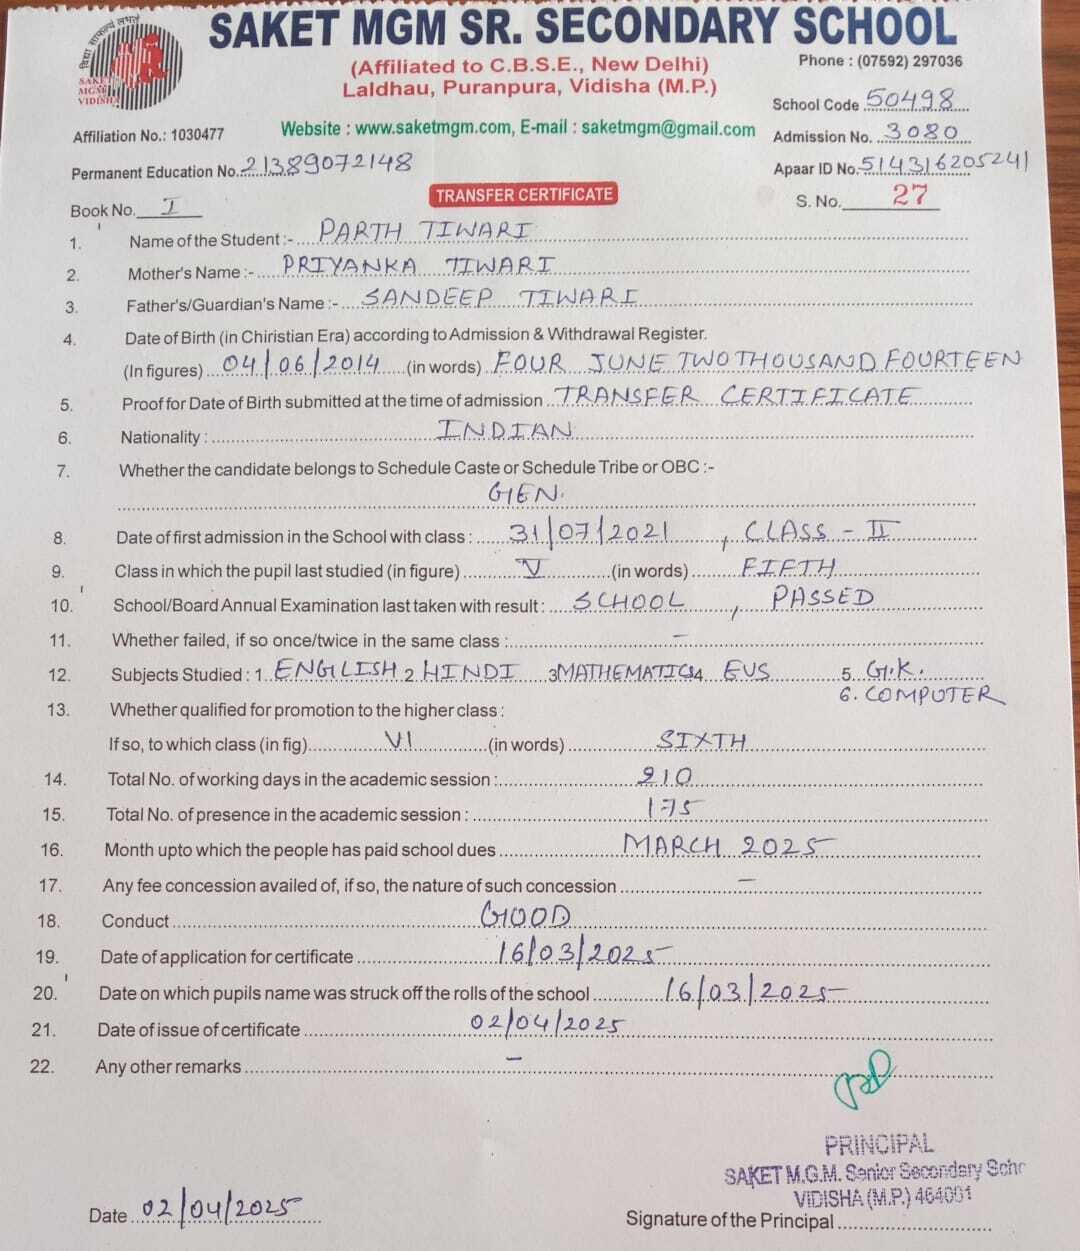 विद्या साफल्य लभतां
SAKET
MGM
VIDISHA
SAKET MGM SR. SECONDARY SCHOOL
(Affiliated to C.B.S.E., New Delhi)
Phone : (07592) 297036
Laldhau, Puranpura, Vidisha (M.P.)
School Code 50498
Affiliation No.: 1030477
Website : www.saketmgm.com, E-mail : saketmgm@gmail.com
Admission No. 3080
Permanent Education No. 21389072148
Apaar ID No. 514316205241
TRANSFER CERTIFICATE
Book No. I
S. No. 27
1. Name of the Student :- PARTH TIWARI
2. Mother's Name :- PRIYANKA TIWARI
3. Father's/Guardian's Name :- SANDEEP TIWARI
4. Date of Birth (in Chiristian Era) according to Admission & Withdrawal Register.
(In figures) 04/06/2014 (in words) FOUR JUNE TWO THOUSAND FOURTEEN
5. Proof for Date of Birth submitted at the time of admission TRANSFER CERTIFICATE
6. Nationality : INDIAN
7. Whether the candidate belongs to Schedule Caste or Schedule Tribe or OBC :-
GEN.
8. Date of first admission in the School with class : 31/07/2021, CLASS - II
9. Class in which the pupil last studied (in figure) V (in words) FIFTH
10. School/Board Annual Examination last taken with result : SCHOOL, PASSED
11. Whether failed, if so once/twice in the same class : -
12. Subjects Studied : 1. ENGLISH 2 HINDI 3 MATHEMATICS 4 EVS 5. G.K.
6. COMPUTER
13. Whether qualified for promotion to the higher class :
If so, to which class (in fig) VI (in words) SIXTH
14. Total No. of working days in the academic session : 210
15. Total No. of presence in the academic session : 175
16. Month upto which the people has paid school dues MARCH 2025
17. Any fee concession availed of, if so, the nature of such concession -
18. Conduct GOOD
19. Date of application for certificate 16/03/2025
20. Date on which pupils name was struck off the rolls of the school 16/03/2025
21. Date of issue of certificate 02/04/2025
22. Any other remarks -
PRINCIPAL
SAKET M.G.M. Senior Secondary Scho
VIDISHA (M.P.) 464001
Date 02/04/2025
Signature of the Principal